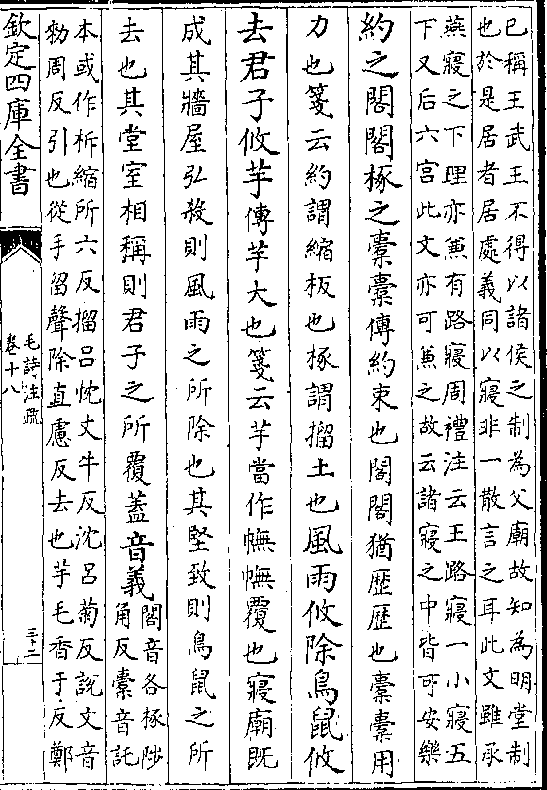 已稱王武王不得以諸侯之制為父廟故知為明堂制
也於是居者居處義同以寢非一散言之耳此文雖承
燕寢之下理亦兼有路寢周禮注云王路寢一小寢五
下又后六宫此文亦可兼之故云諸寢之中皆可安樂
約之閣閣椓之橐橐傳約束也閣閣猶歴歴也橐橐用
力也箋云約謂縮板也椓謂㨨土也風雨攸除鳥鼠攸
去君子攸芋傳芋大也箋云芋當作幠幠覆也寢廟既
成其牆屋弘殺則風雨之所除也其堅致則鳥鼠之所
去也其堂室相稱則君子之所覆蓋音義
閣音各椓陟
角反橐音託
本或作柝縮所六反㨨吕忱丈牛反沈吕菊反說文音
勑周反引也從手留聲除直慮反去也芋毛香于反鄭
欽定四庫全書
毛詩注疏
卷十八
三十二